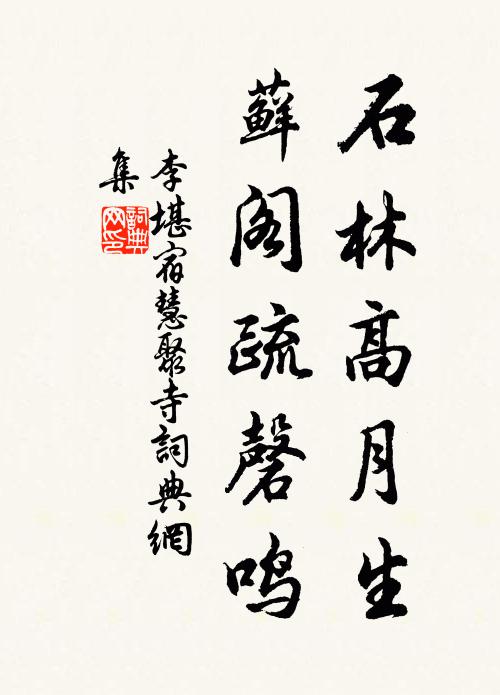 石林高月生
蘚阁疏磬鸣
李堪宿慧聚寺詞典網
集
詞典
网印